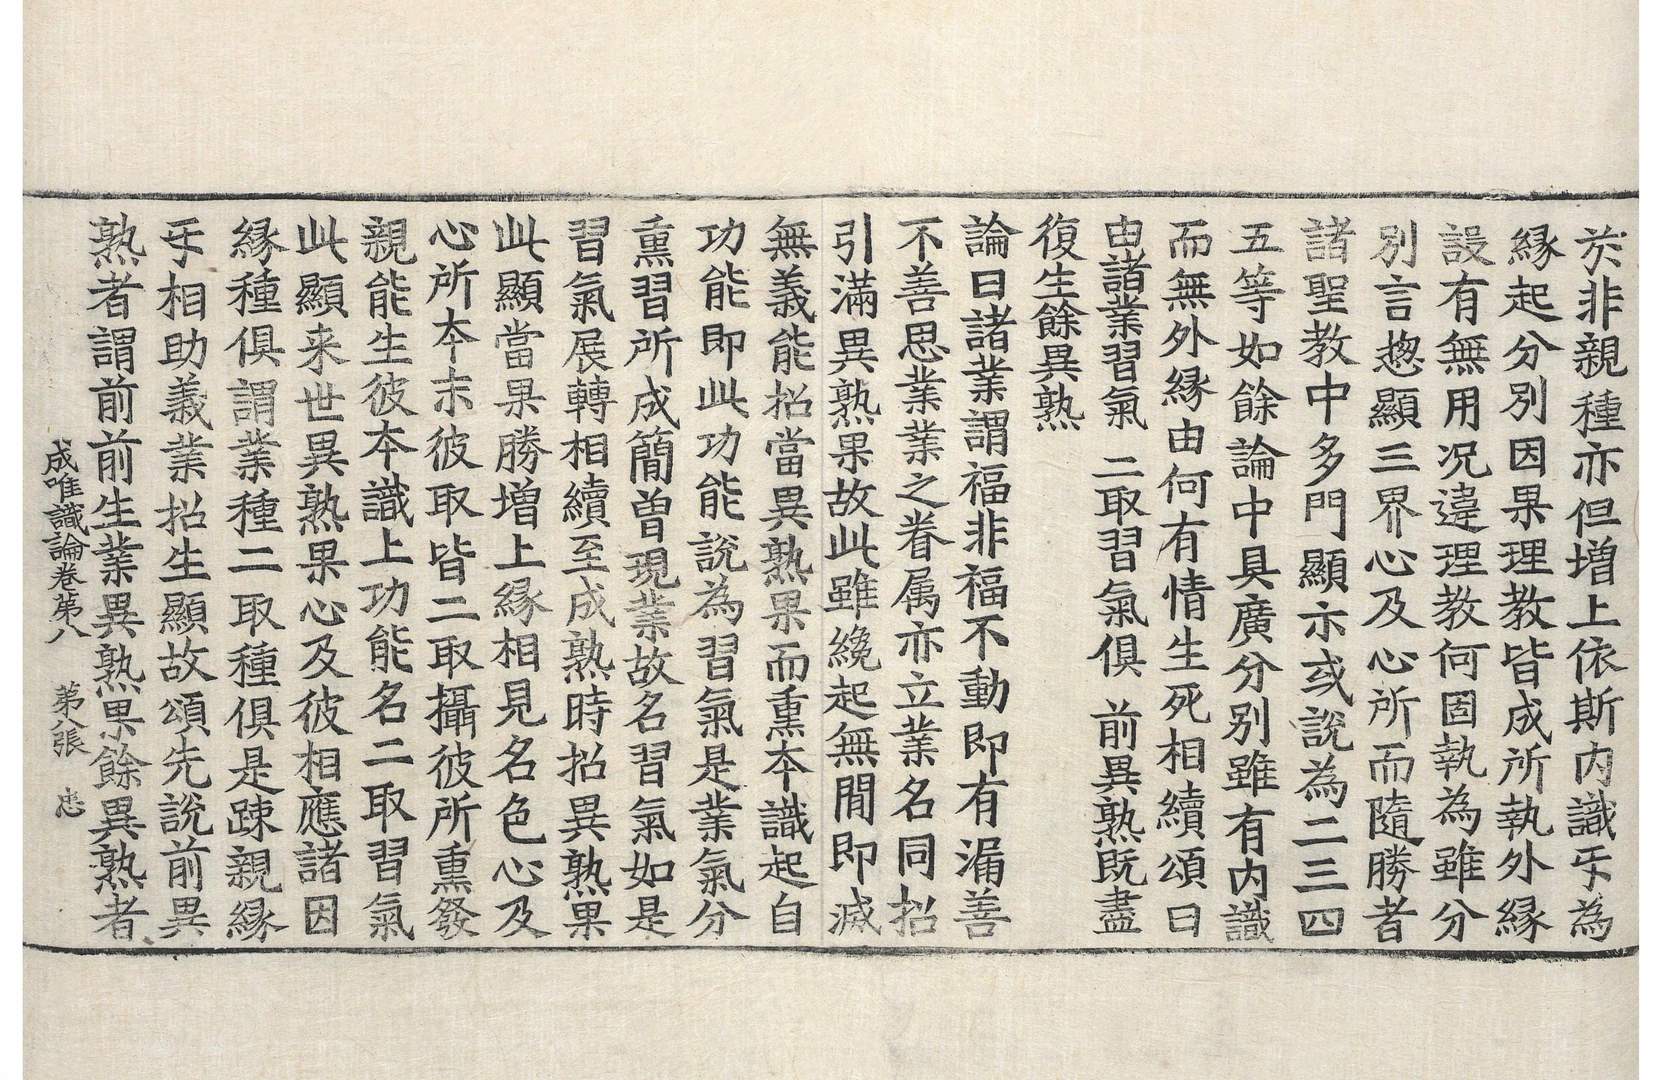 於非親種亦但增上依斯內識㸦為
緣起分別因果理教皆成所執外緣
設有無用况違理教何固執為雖分
別言揔顯三界心及心所而隨勝者
諸聖教中多門顯示或說為二三四
五等如餘論中具廣分別雖有內識
而無外緣由何有情生死相續頌曰
由諸業習氣　二取習氣俱　前異熟既盡
復生餘異熟
論曰諸業謂福非福不動即有漏善
不善思業業之眷属亦立業名同招
引滿異熟果故此雖纔起無間即滅
無義能招當異熟果而熏本識起自
功能即此功能說為習氣是業氣分
熏習所成簡曾現業故名習氣如是
習氣展轉相續至成熟時招異熟果
此顯當果勝增上緣相見名色心及
心所本末彼取皆二取攝彼所熏發
親能生彼本識上功能名二取習氣
此顯来世異熟果心及彼相應諸因
緣種俱謂業種二取種俱是踈親緣
㸦相助義業招生顯故頌先說前異
熟者謂前前生業異熟果餘異熟者
成唯識論卷第八　第八張　忠